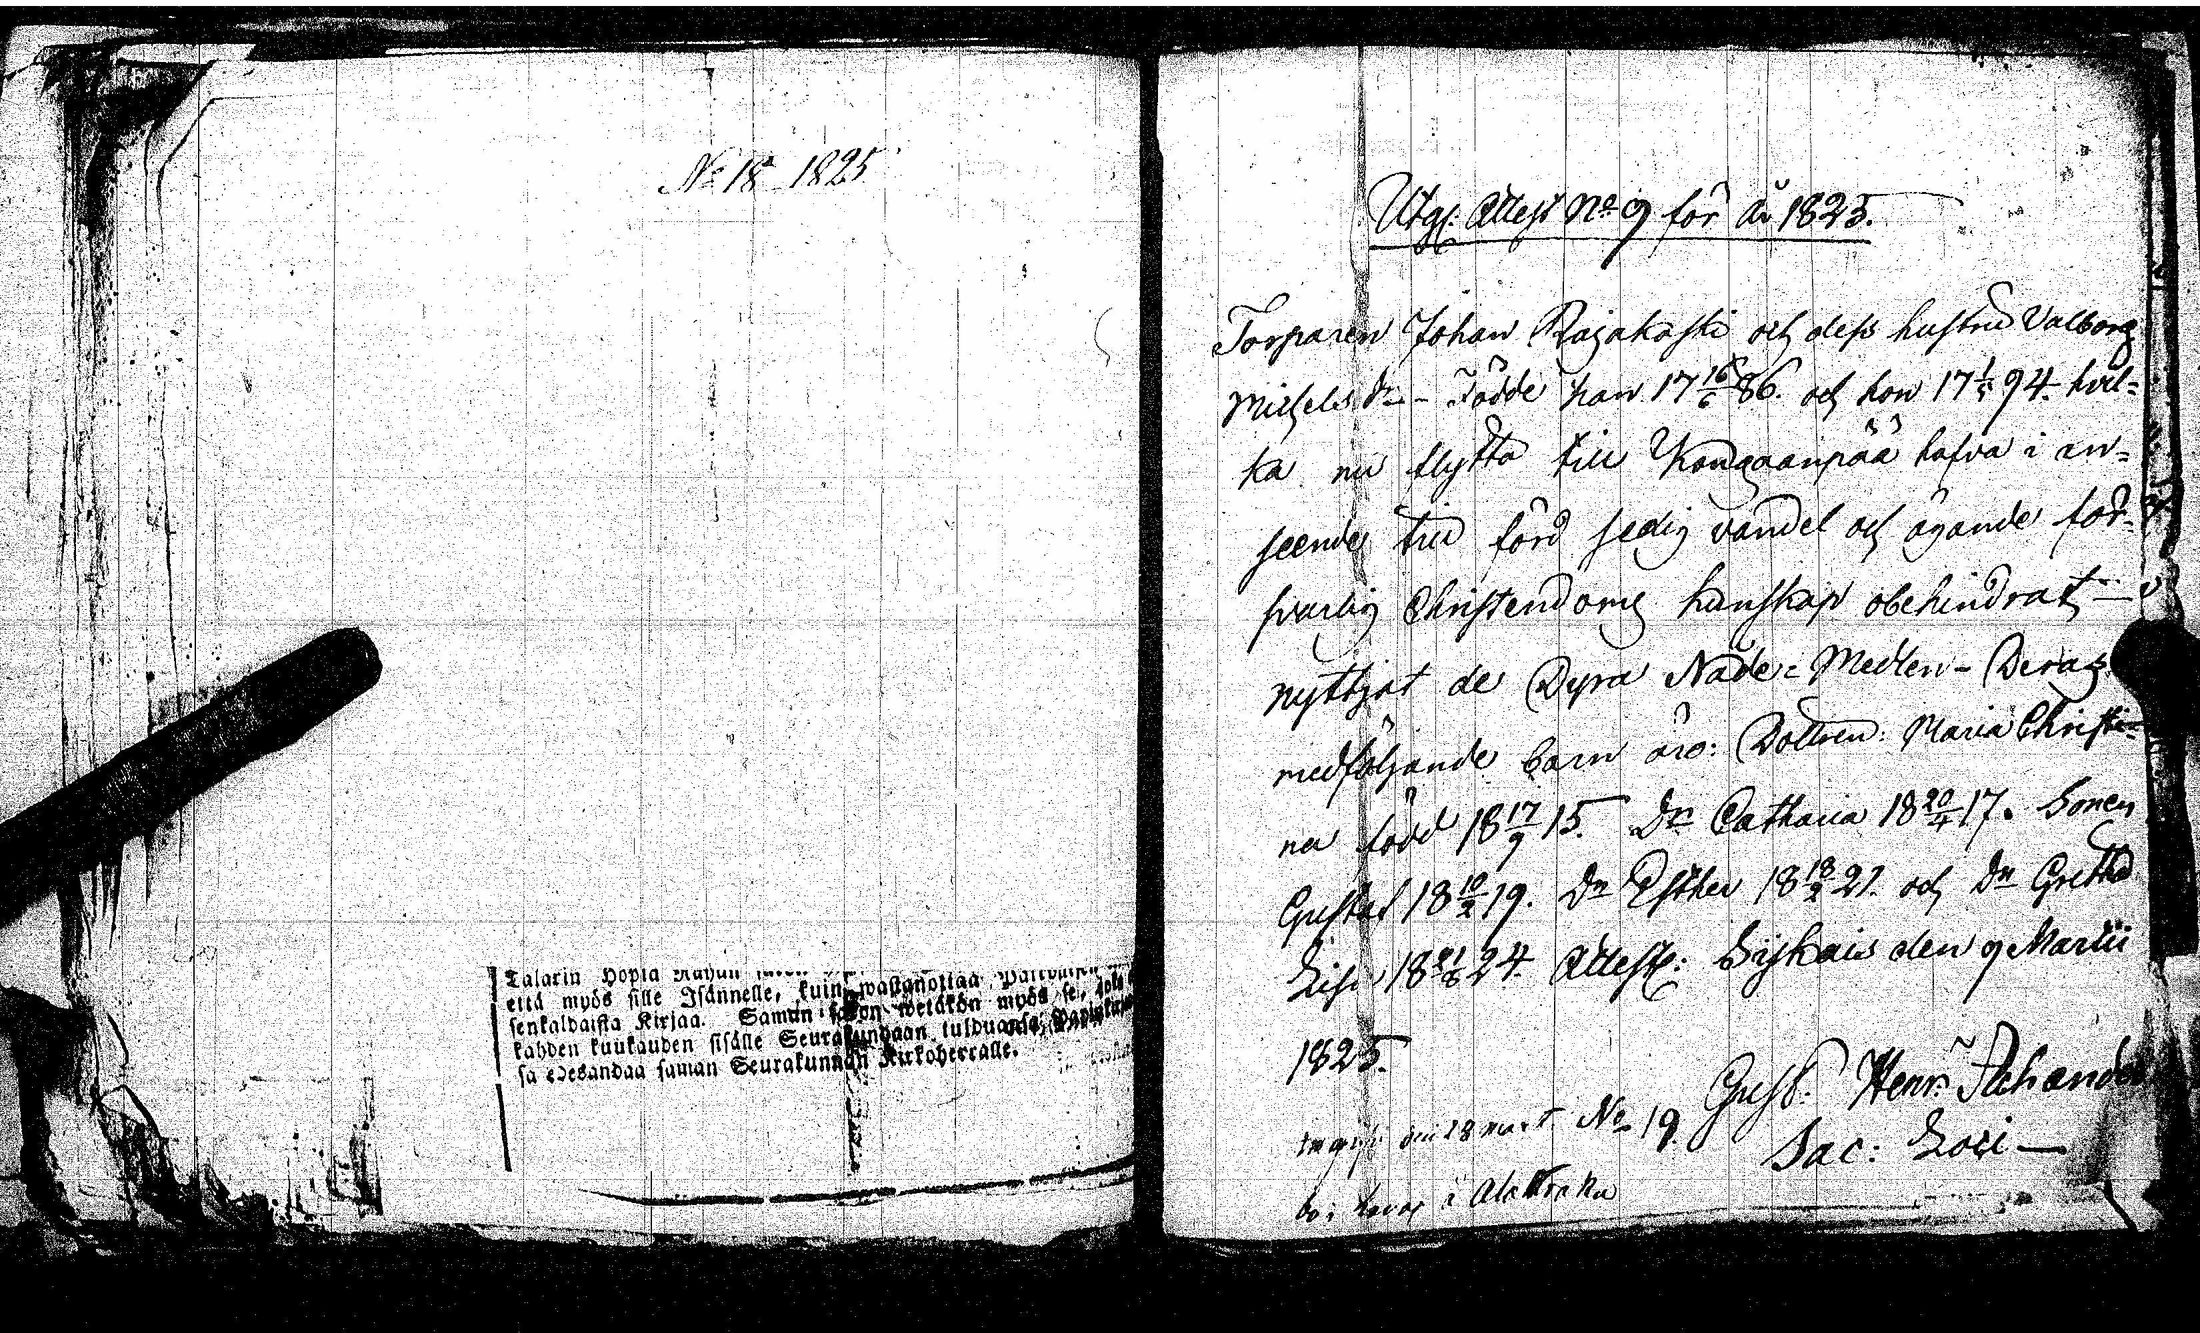 No 18 1825
Talarin
että myös sille Isännelle, kuin wastanottaa
senkaldaista Kirjaa. Samun wetäkön myös se,
kahden kuukauden sisälle Seurakundaan tulduansa,
sa edesandaa saman Seurakunnan Kirkoherralle.
Utgf. Attest No 9 för år 1825.
Torparen Johan Rajakoski och dess hustru Valborg
Michels dr - Födde han 17 16/6 86. och hon 17 94. hvil=
ka nu flytta till Kangaanpää hafva i an=
seende till förd sedig vandel och ägande för=
svarlig Christendoms kunskap obehindrat
nyttjat de Dyra Nåde= Medlen - Deras
medföljande barn äro: Dottren: Maria Christi=
na född 18 17/9 15. Dr Catharia 18 20/4 17. Sonen
Gustaf 18 10/2 19. Dr Esther 18 18/2 21. och Dr Gretha
Lisa 18 24. Attest: Siikais den 9 Martii
1825.
Gust: Henr:
Sac: Loci
den 28 Mart No 19
i